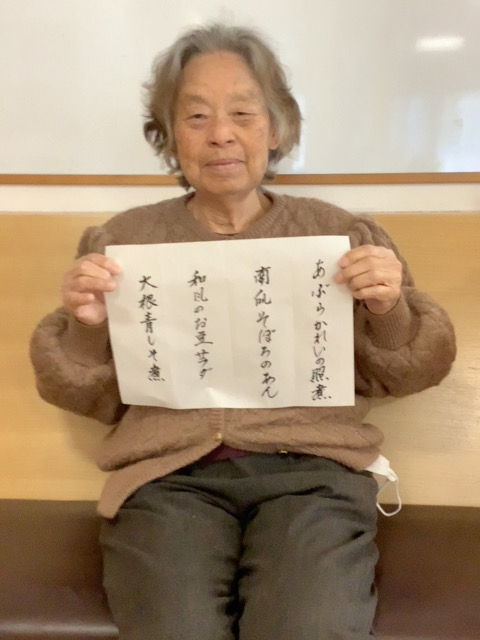 あぶらかれいの照煮
南瓜そぼろのあん
和風のお豆サラダ
大根青しそ煮